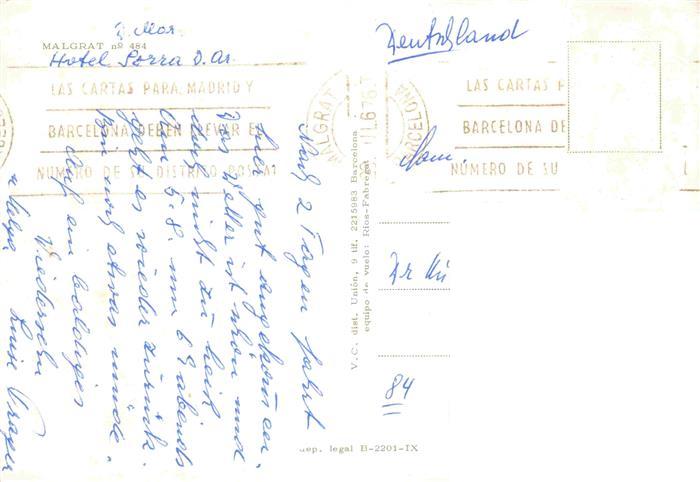 Z. Mor.
MALGRAT nº 484
Hotel Sorra D. Ar.
LAS CARTAS PARA MADRID Y
BARCELONA DEBEN LLEVAR EL
NUMERO DE SU DISTRITO POSTAL
Nach 2 Tagen fahrt
hier gut angekommen.
Das Wetter ist schön und
doch nicht zu heiß
am 5.8. um 6 h abends
geht es wieder zurück.
bin noch etwas müde.
Auf ein baldiges
Wiedersehn
Luise
V.C. dist. Unión, 9 tlf. 2215983 Barcelona
equipo de vuelo: Rios-Fabregat
dep. legal B-2201-IX
Deutschland
MALGRAT
BARCELONA
LAS CARTAS P
BARCELONA DE
NUMERO DE SU
L
Fam.
84